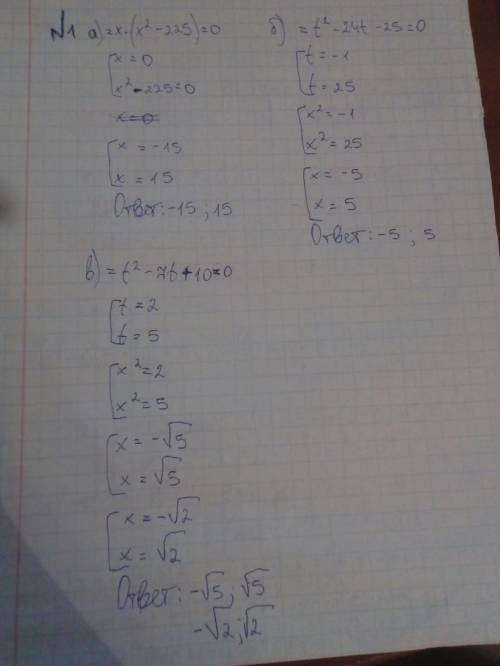 №1 а) = x·(x² - 225) = 0
x = 0
x² - 225 = 0
x = 0
x = -15
x = 15
Ответ: -15 ; 15
б) = t² - 24t - 25 = 0
t = -1
t = 25
x² = -1
x² = 25
x = -5
x = 5
Ответ: -5 ; 5
в) = t² - 7t + 10 = 0
t = 2
t = 5
x² = 2
x² = 5
x = -√5
x = √5
x = -√2
x = √2
Ответ: -√5 ; √5
-√2 ; √2